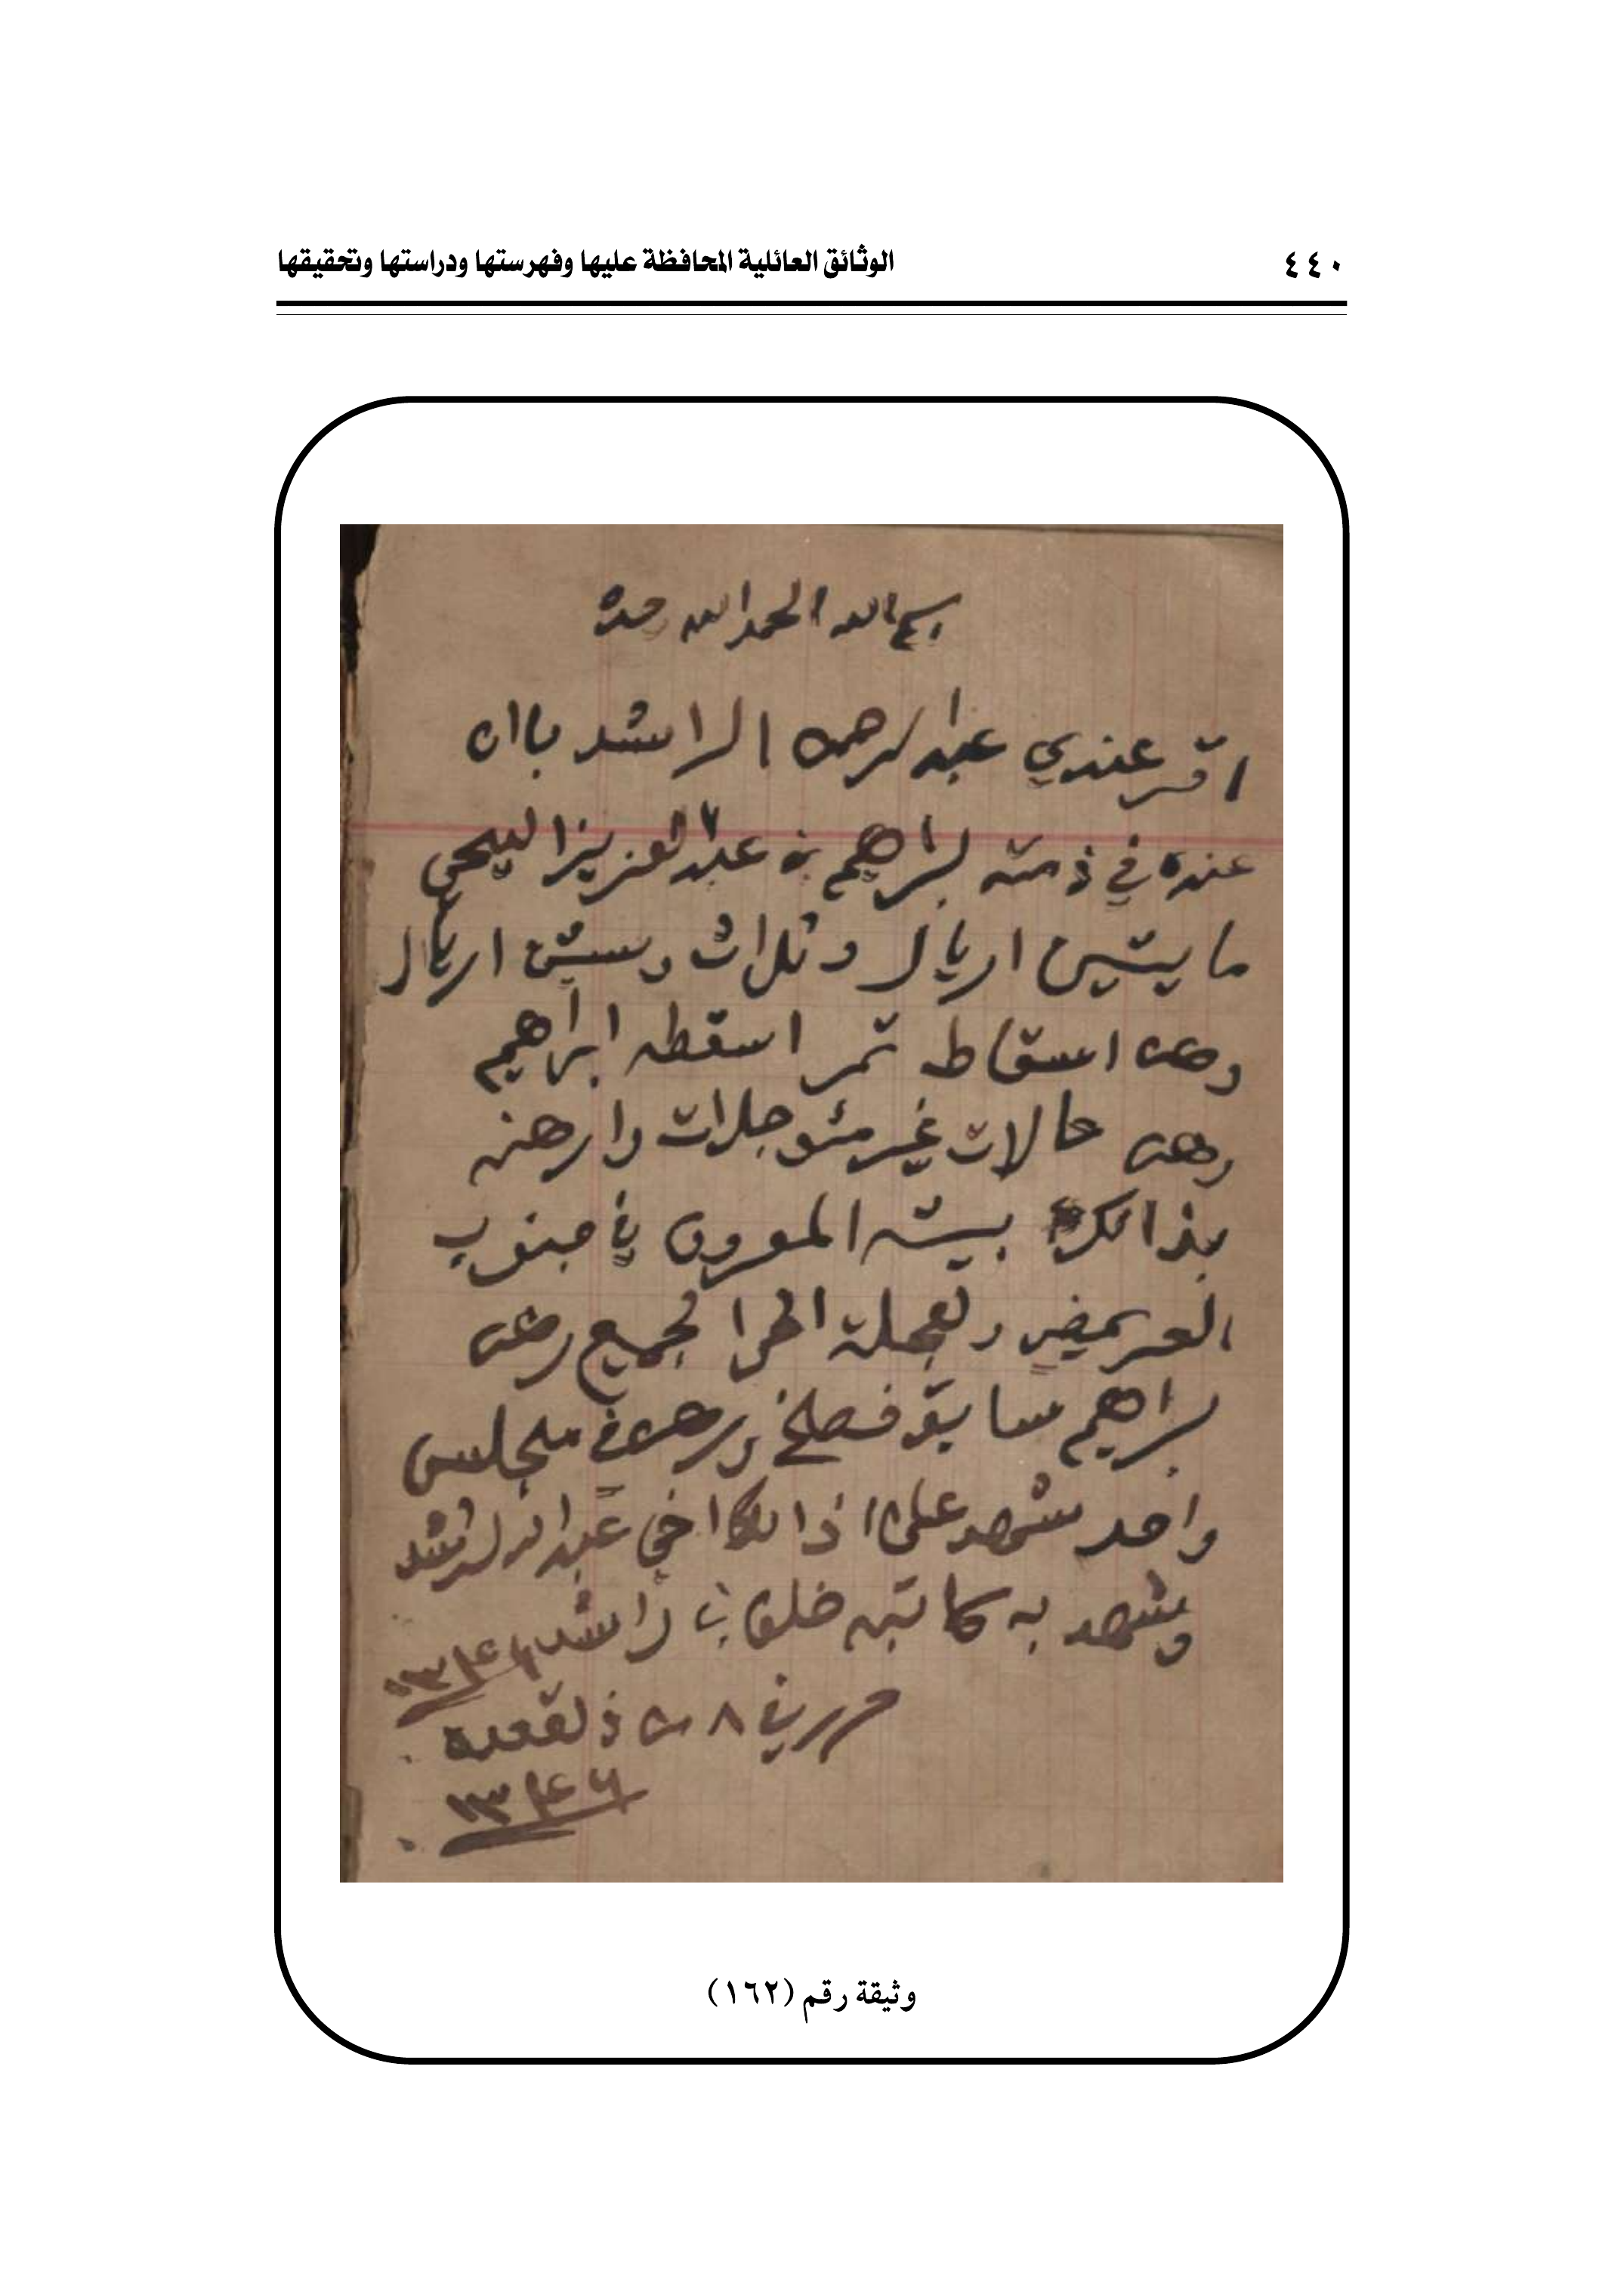 ٤٤٠
الوثائق العائلية المحافظة عليها وفهرستها ودراستها وتحقيقها
بسم الله الحمد الله حده
اقر عندي عبد الرحمن الراشد باان
عنده في ذمته لبراهيم بن عبد العزيز اليحي
مايتين اريال وثلاث وستين اريال
وهن اسقاطه تمر اسقطه ابراهيم
وهن حالات غير مئوجلات وارهنه
بذالك بيته المعروف في جنوب
العريمضي ولعجلة الحمرا لجميع رهن
براهيم سابق فصلخ ورهن في ملجلس
واحد شهد علىا ذالك اخي عبد الله لرشد
وشهد به كاتبه خلف بن راشد ١٣٤٦
حرر في ٨ من ذلقعدة
١٣٤٦
وثيقة رقم (١٦٢)